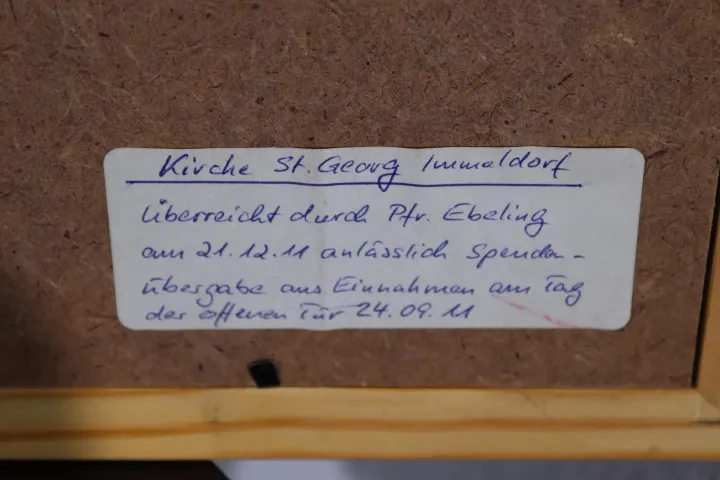 Kirche St. Georg Immeldorf
überreicht durch Pfr. Ebeling
am 21.12.11 anlässlich Spenden-
übergabe aus Einnahmen am Tag
der offenen Tür 24.09.11